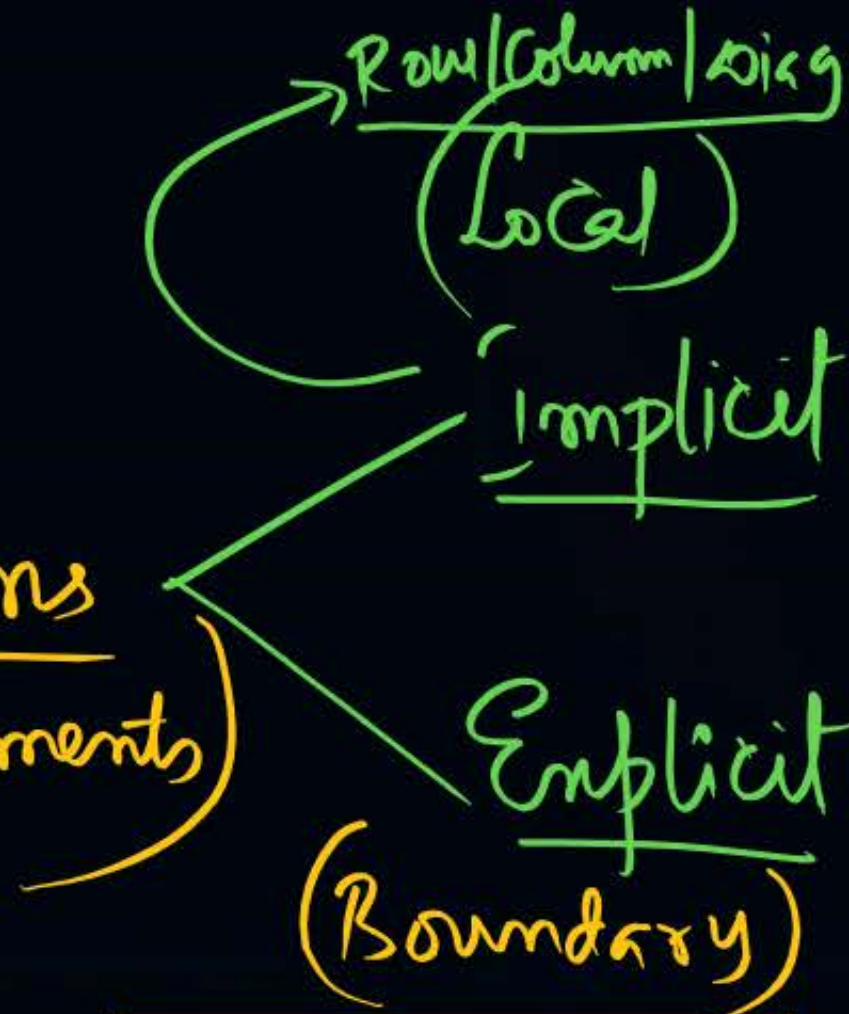 Row/Column/Diag
(Local)
Implicit
ns
ments)
Explicit
(Boundary)